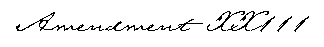 Amendment XXIII